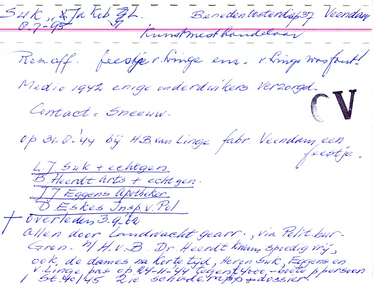 Suk, Jakob Beneden Oosterdiep 37 Veendam
0-7-95
Kunstmesthandelaar
Res. off. feestje v Linge enz. v Linge was fout!
Medio 1942 enige onderduikers verzorgd.
CV
Contact = Sneeuw.
op 31.8.'44 bij H.B van Linge fabr. Veendam, een
feestje.
L.J Suk + echtgen.
B Heerdt Arts + echtgen.
J J Eggens Apotheker
D Eskes Insp. v Pol
† overleden
allen door Landwacht gearr. via Polit. bur.
Gron. n/ H.v.B. Dr Heerdt kwam spoedig vrij,
ook de dames na korte tijd, Heren Suk, Eggens en
v Linge pas op 24-11-44 tegen boete p persoon
1 St. 40/45 zie schaderapp + dossier